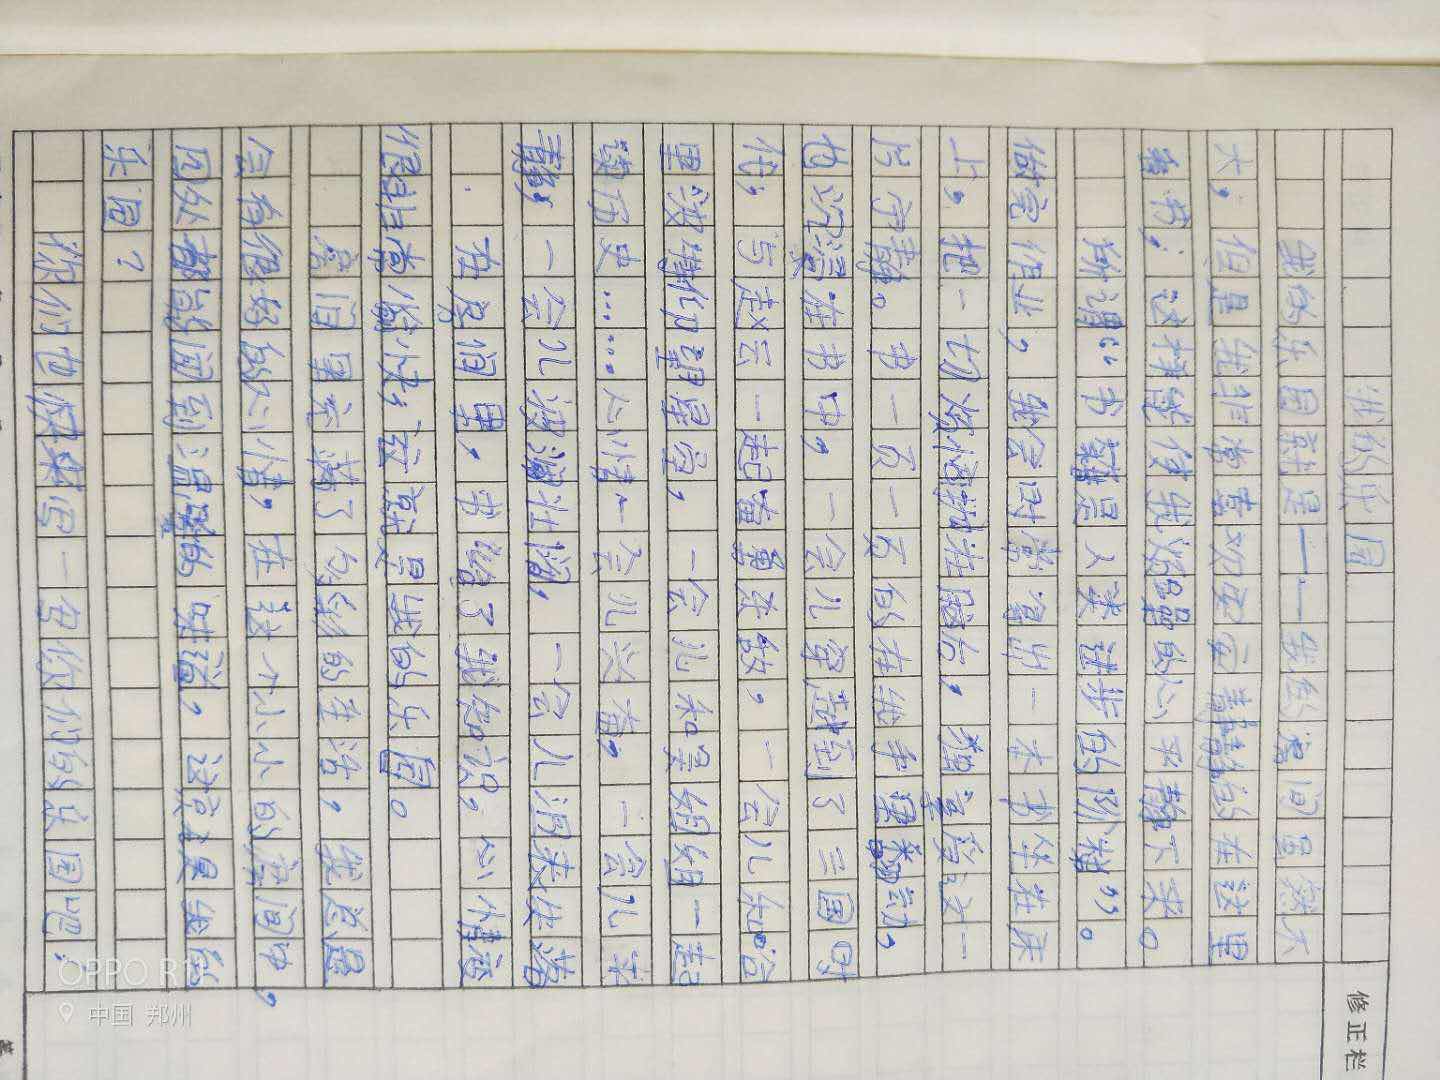 我的乐园
我的乐园就是——我的房间虽然不
大，但是我非常喜欢安安静静的在这里
看书；这样能使我浮躁的心平静下来。
所谓“书籍是人类进步的阶梯”。
做完作业，我会时常拿出一本书坐在床
上，把一切烦恼都抛在脑后，独享这一
片宁静。书一页一页的在我手里翻动，
也沉浸在书中，一会儿穿越到了三国时
代，与赵云一起奋勇杀敌，一会儿和哈
里波特仰望星空，一会儿和吴姐姐一起
读历史……心情一会儿兴奋，一会儿平
静，一会儿波澜壮阔，一会儿浪麦快落
在房间里，书给了我知识，心情变
得非常愉快；这就是我的乐园。
房间里充满了多彩的生活，我总是
会有很好的心情，在这个小小的房间中，
四处都能闻到温馨的味道，这就是我的
乐园？
你们也快来写一写你们的乐园吧！
修正栏
OPPO R
中国 郑州